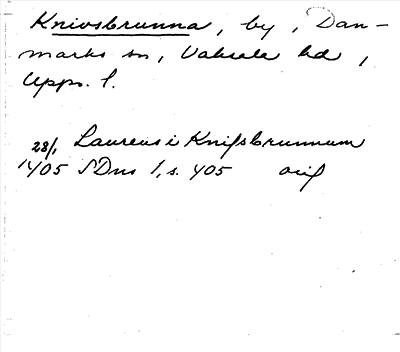 Knivsbrunna, by, Dan-
marks sn, Vaksala hd,
Upps. l.
28/1 Laurens i Knifsbrunnum
1405 SDns 1, s. 405 orig